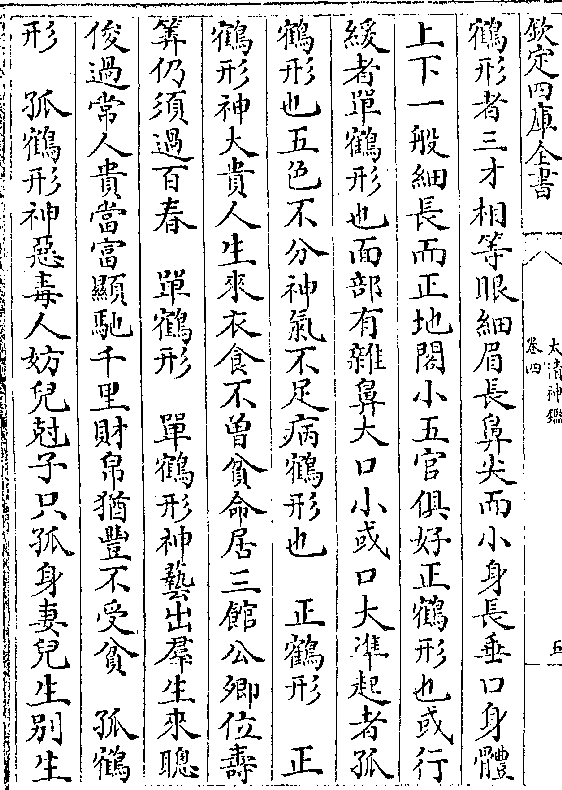 欽定四庫全書
太清神鑑
卷四
五
鶴形者三才相等眼細眉長鼻尖而小身長垂口身體
上下一般細長而正地閣小五官俱好正鶴形也或行
緩者單鶴形也面部有雜鼻大口小或口大準起者孤
鶴形也五色不分神氣不足病鶴形也　正鶴形　正
鶴形神大貴人生來衣食不曾貧命居三館公卿位壽
筭仍須過百春　單鶴形　單鶴形神藝出羣生來聰
俊過常人貴當富顯馳千里財帛猶豐不受貧　孤鶴
形　孤鶴形神惡毒人妨兒尅子只孤身妻兒生别生